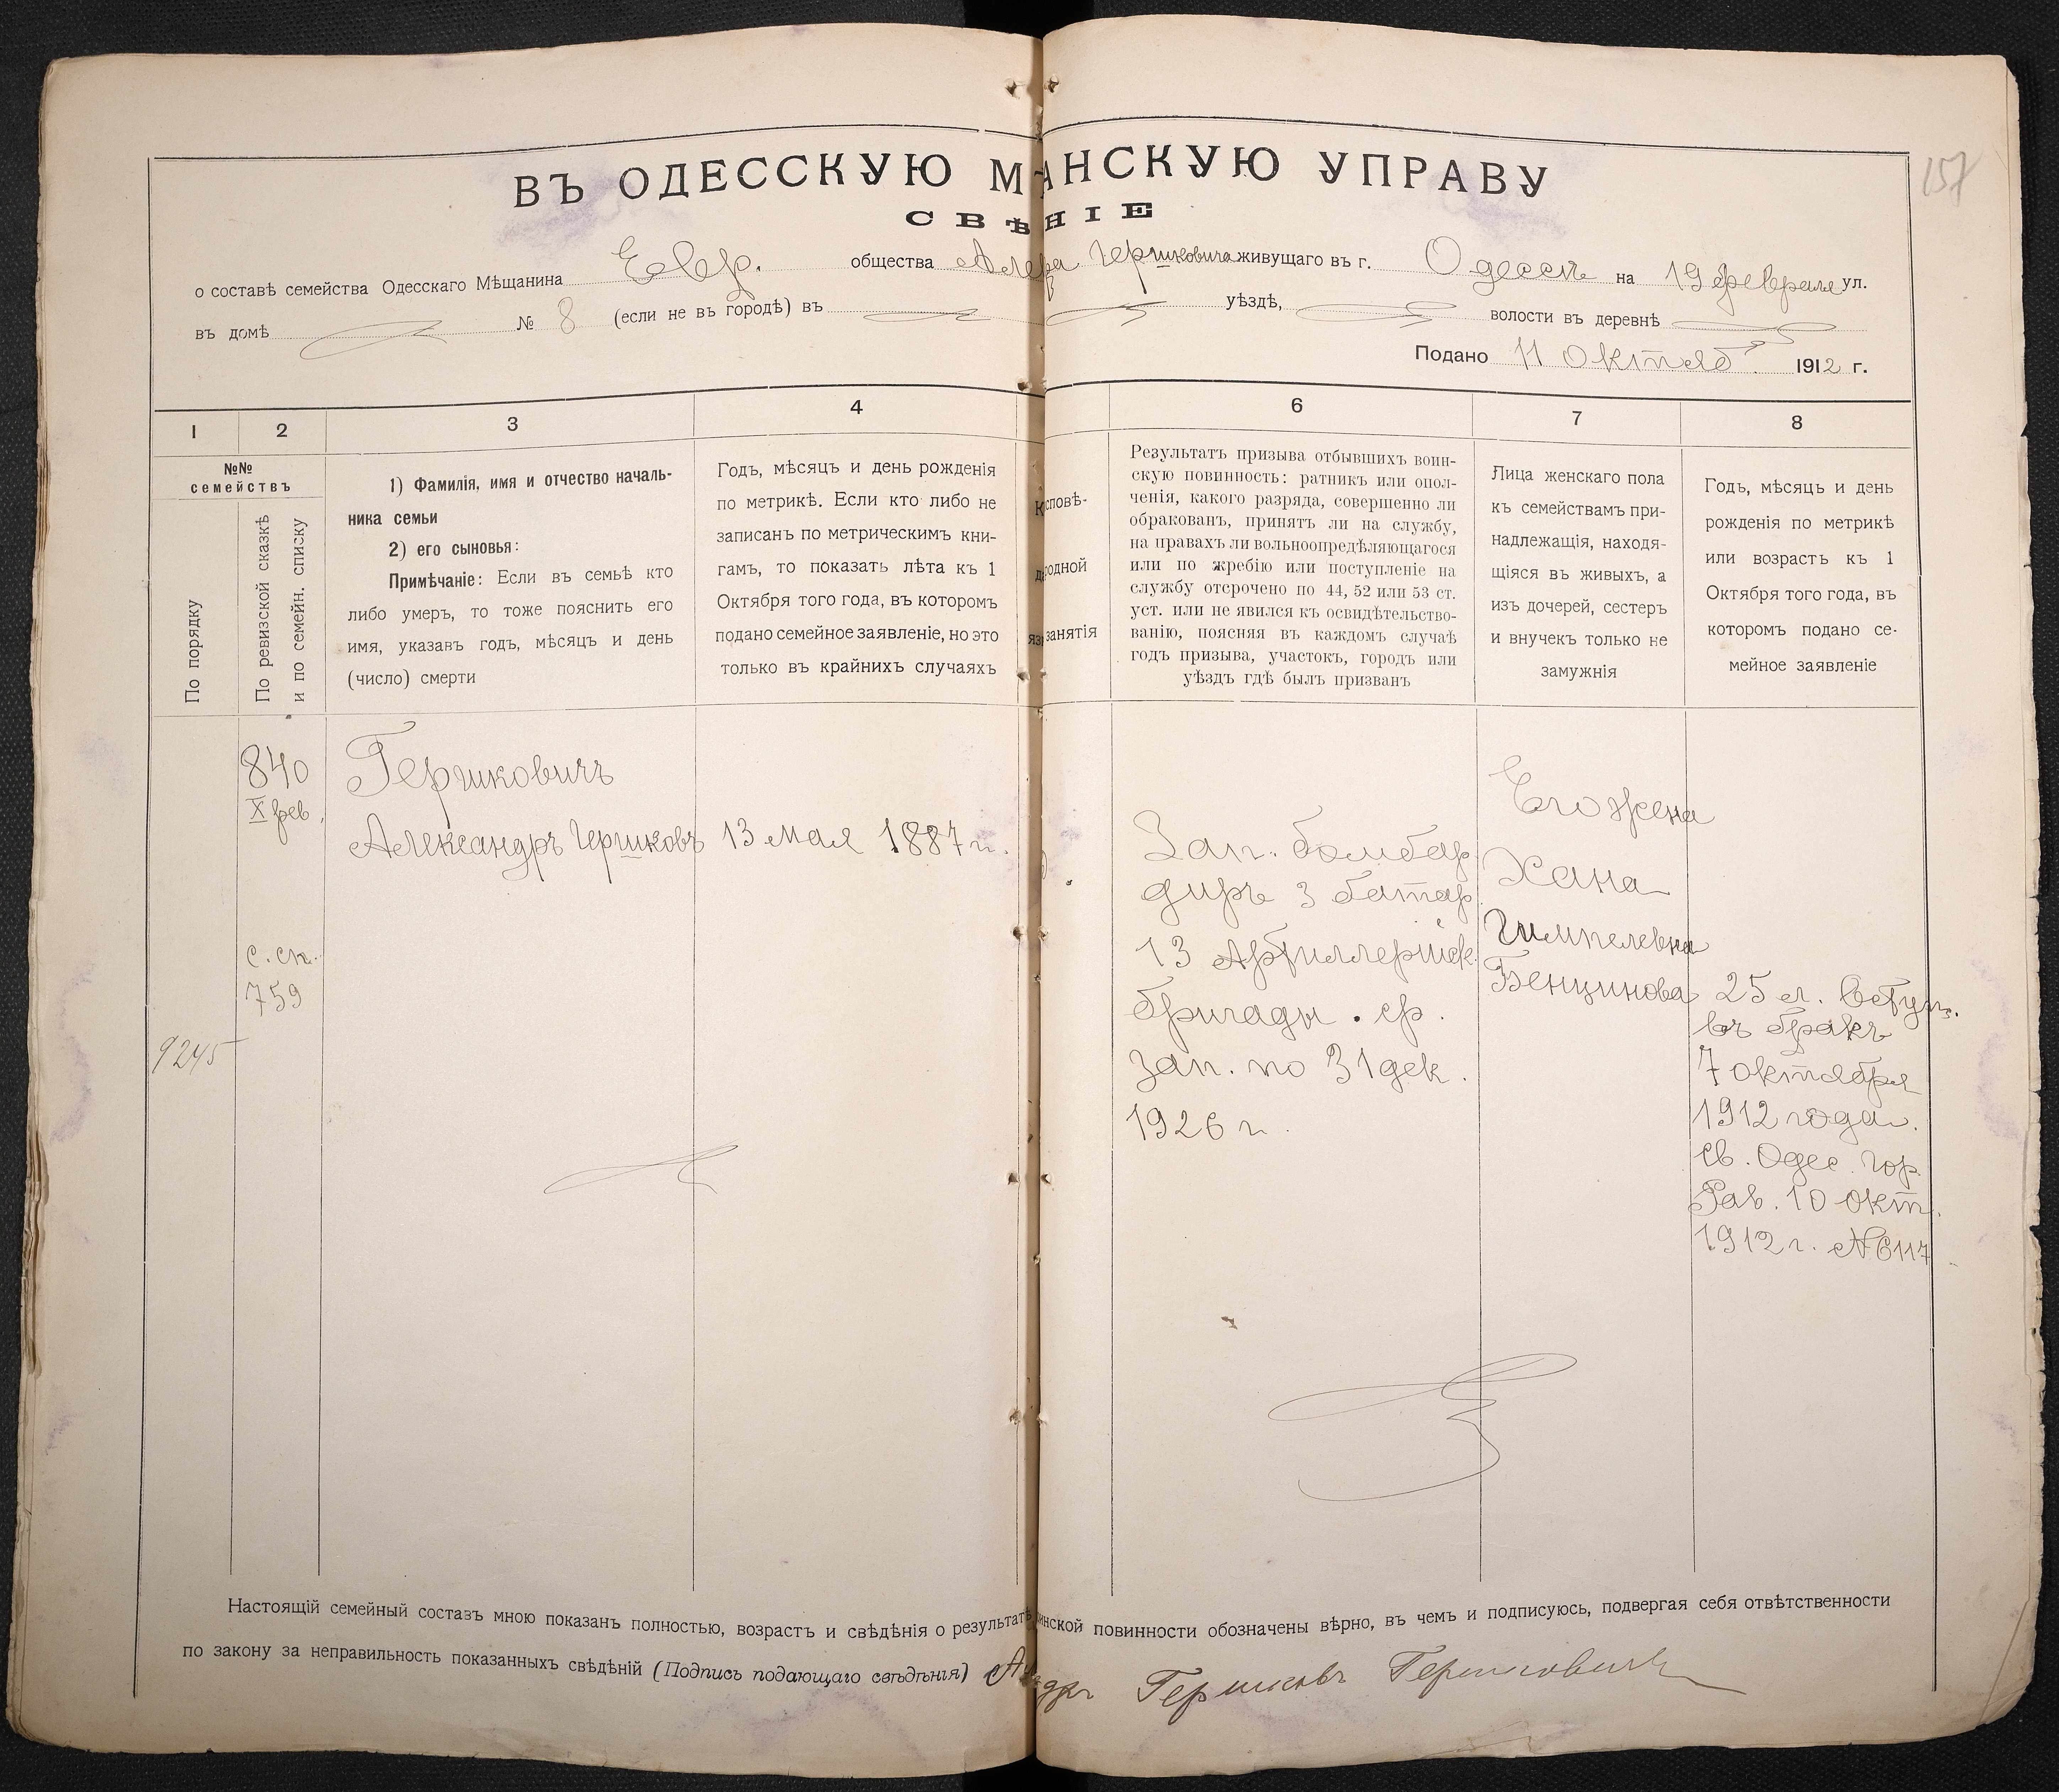 157
ВЪ ОДЕССКУЮ М АНСКУЮ УПРАВУ
СВѢ НІЕ
о составѣ семейства Одесскаго Мѣщанина Евр. общества Гершковича живущаго въ г. Одессѣ на 19 февраля ул.
въ домѣ № 8 (если не въ городѣ) въ уѣздѣ, волости въ деревнѣ
Подано 11 Октяб. 1912 г.
1
2
3
4
6
7
8
№№
семействъ
По порядку
По ревизской сказкѣ
и по семейн. списку
1) Фамилія, имя и отчество началь-
ника семьи
2) его сыновья:
Примѣчаніе: Если въ семьѣ кто
либо умеръ, то тоже пояснить его
имя, указавъ годъ, мѣсяцъ и день
(число) смерти
Годъ, мѣсяцъ и день рожденія
по метрикѣ. Если кто либо не
записанъ по метрическимъ кни-
гамъ, то показать лѣта къ 1
Октября того года, въ которомъ
подано семейное заявленіе, но это
только въ крайнихъ случаяхъ
сповѣ-
одной
занятія
Результатъ призыва отбывшихъ воин-
скую повинность: ратникъ или опол-
ченія, какого разряда, совершенно ли
обракованъ, принятъ ли на службу,
на правахъ ли вольноопредѣляющагося
или по жребію или поступленіе на
службу отсрочено по 44, 52 или 53 ст.
уст. или не явился къ освидѣтельство-
ванію, поясняя въ каждомъ случаѣ
годъ призыва, участокъ, городъ или
уѣздъ гдѣ былъ призванъ
Лица женскаго пола
къ семействамъ при-
надлежащія, находя-
щіяся въ живыхъ, а
изъ дочерей, сестеръ
и внучекъ только не
замужнія
Годъ, мѣсяцъ и день
рожденія по метрикѣ
или возрастъ къ 1
Октября того года, въ
которомъ подано се-
мейное заявленіе
9245
840
X рев.
с. сп.
759
Гершковичъ
Александръ Гершковъ
13 мая 1887 г.
Зап. бомбар
диръ 3 батар
13 Артиллерійск.
бригады. ср.
зап. по 31 дек.
1926 г.
Его жена
Хана
Гимпелевна
Бенцинова
25 л. Вступ.
въ бракъ
7 октября
1912 года.
св. Одес. гор.
Рав. 10 окт.
1912 г. № 6117
Настоящій семейный составъ мною показанъ полностью, возрастъ и свѣдѣнія о результатѣ инской повинности обозначены вѣрно, въ чемъ и подписуюсь, подвергая себя отвѣтственности
по закону за неправильность показанныхъ свѣдѣній (Подпись подающаго свѣдѣнія) Гершковъ Гершковичъ